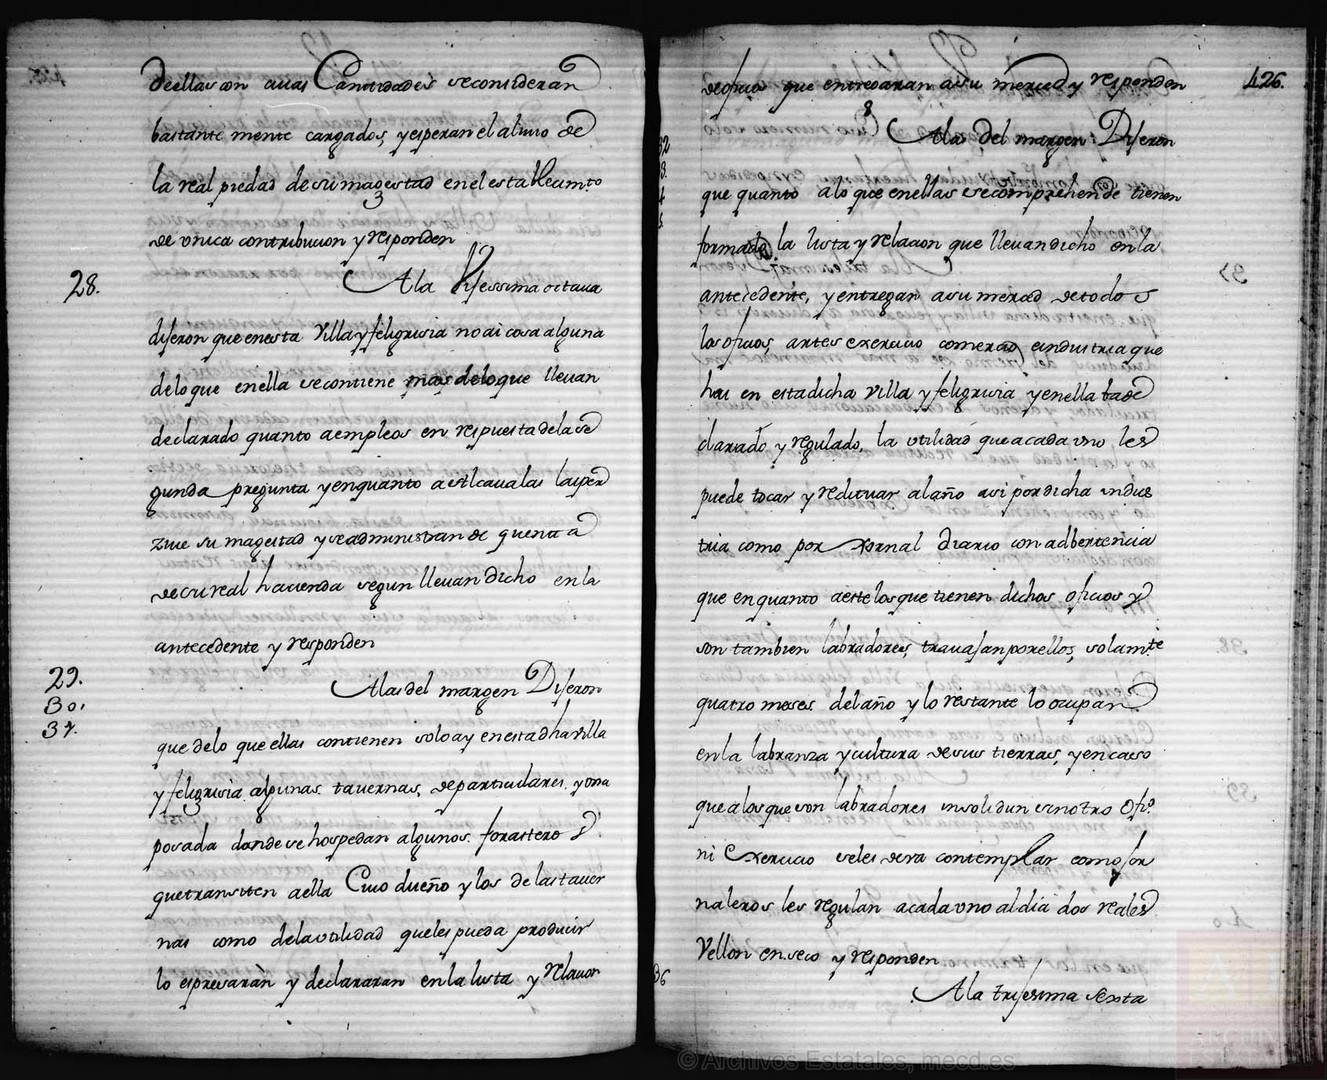 de ellas con cuias Cantidades se consideran
bastante mente cargados, y esperan el alivio de
la real piedad de su magestad en el establecim.to
de vnica contribucion y responden
28.
A la Vijessima octaua
dijeron que en esta Villa y feligrisia no ai cosa alguna
de lo que en ella se contiene mas de lo que lleuan
declarado quanto a empleos en respuesta de la se
gunda pregunta y en quanto a Alcaualas las per
ziue su magestad y se administran de quenta
de su real hacienda segun lleuan dicho en la
antecedente y responden
29.
30.
31.
A las del margen Dijeron
que de lo que ellas contienen solo ay en esta dha villa
y feligrisia algunas tauernas, de particulares, y vna
posada donde se hospedan algunos forasteros
que transiten a ella Cuio dueño y los de las tauer
nas como de la vtilidad que les pueda producir
lo espresaràn y declararan en la lista y relacion
426.
de oficio que entregaran a su merced y responden
32
3.
4
5
A las del margen Dijeron
que quanto a lo que en ellas se comprehende tienen
formado la lista y relacion que lleuan dicho en la
antecedente, y entregan a su merced de todos
los oficios, artes exercicio comercio e industria que
hai en esta dicha Villa y feligrisia y en ella ba de
clarado y regulado, la vtilidad que a cada vno les
puede tocar y redituar al año asi por dicha indus
tria como por Xornal diario con adbertencia
que en quanto a estelos que tienen dichos oficios y
son tambien labradores, trauajan por ellos, solam.te
quatro meses del año y lo restante lo ocupan
en la labranza y cultura de sus tierras, y en caso
que a los que son labradores insolidun sin otro Ofi.o
ni Exercicio se les deva contemplar como jor
naleros les regulan a cada vno al dia dos reales
Vellon en seco y responden
36
A la trijesima sexta
© Archivos Estatales, mecd.es